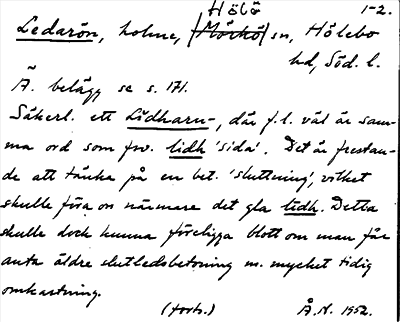 Hölö 1-2.
Ledarön, holme, [Mörkö] sn, Hölebo
hd, Söd. l.
Ä. belägg se s. 171.
Säkerl. ett Lidharu-, där f.l. väl är sam-
ma ord som fsv. lidh 'sida'. Det är frestan-
de att tänka på en bet. 'sluttning', vilket
skulle föra on närmare det gla lidh. Detta
skulle dock kunna föreligga blott om man får
anta äldre slutledsbetoning m. mycket tidig
omkastning.
(forts.) Å.N. 1952.